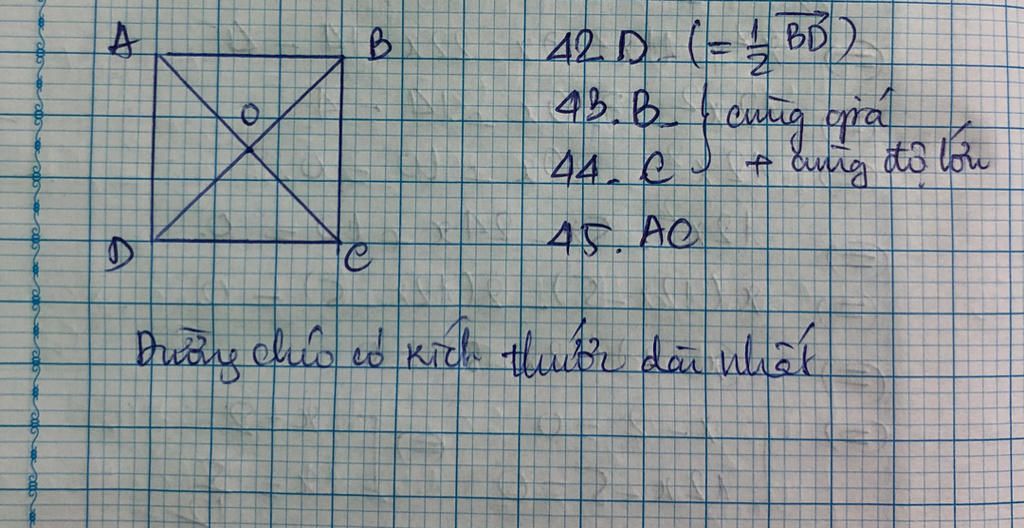 A B
O
D C
42 D (= 1/2 \overrightarrow{BD})
43. B } cùng giá
44. C } + cùng độ lớn
45. AC
Đường chéo có kích thước dài nhất